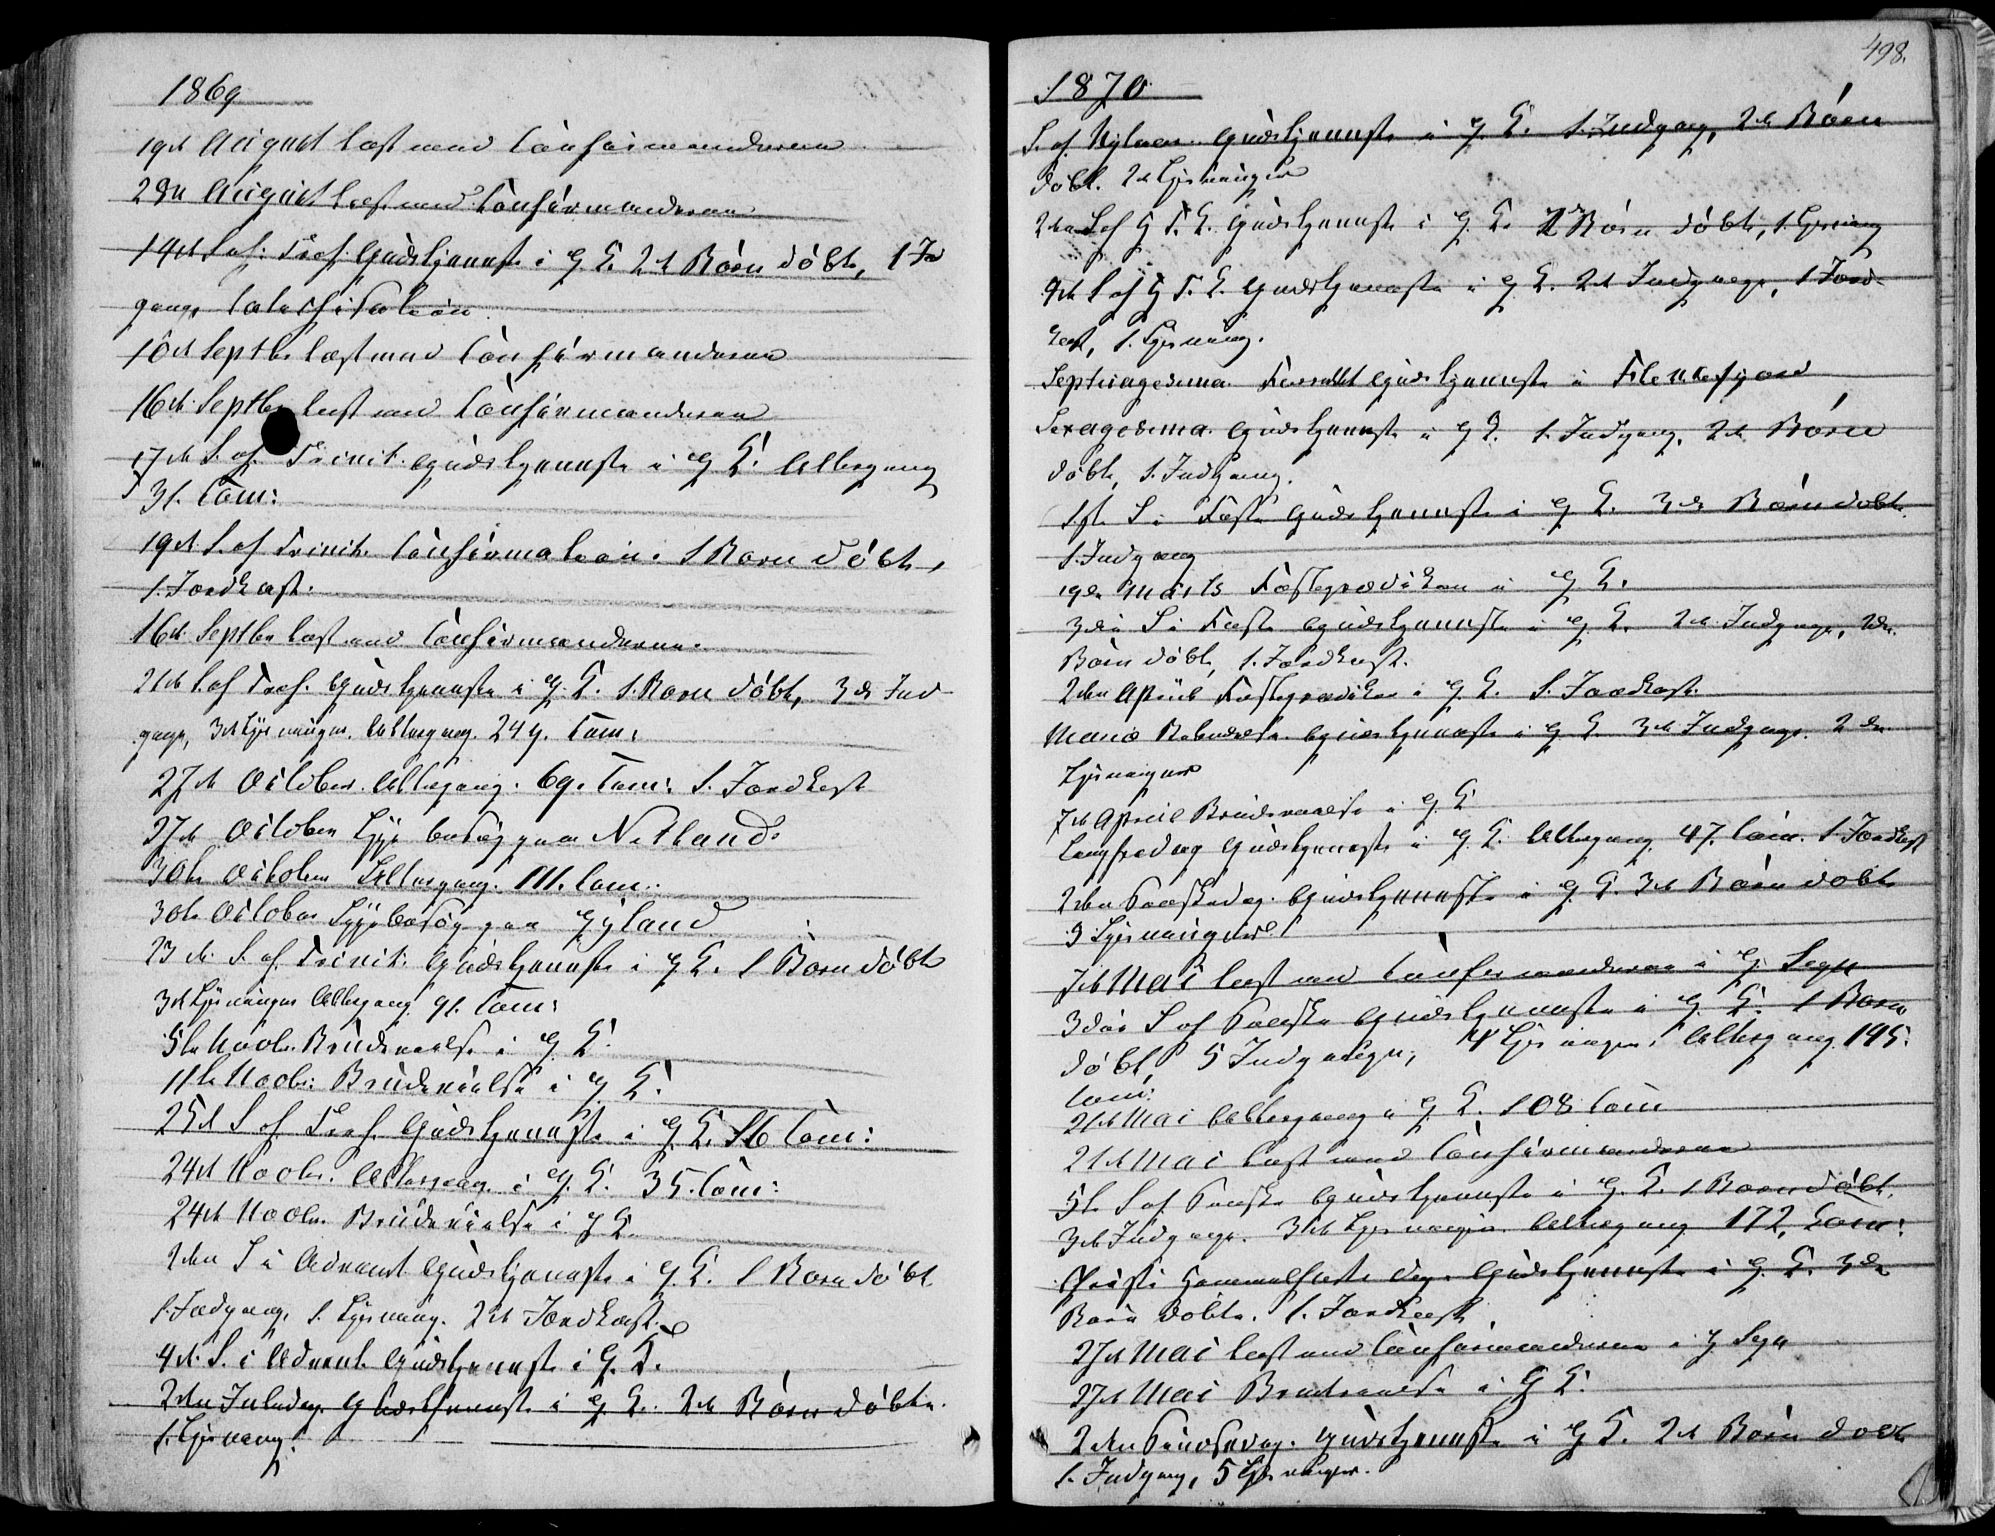 1869
19de August læst med Confirmanderne
2den August læst med Confirmanderne
14de S. ef. Tref. Gudstjeneste i G. K. 2de Børn døbte, 1 Ind
gang, Catechisation.
10de Septbr læst med Confirmanderne
16de Septbr læst med Confirmanderne
17de S. ef. Trinit. Gudstjeneste i G K. Altergang
31. Com:
19de S. ef Trinit. Confirmation. 1 Barn døbt,
1. Jordkast.
16de Septbr læst med Confirmanderne.
21de S. ef Tref. Gudstjeneste i G. K. 1. Barn døbt, 3de Ind
gange, 3de Lysninger. Altergang. 249. Com:
27de October. Altergang. 69. Com: 1. Jordkast
27de October Syge besøg paa Netland.
30te October Altergang. 111. Com:
30te October Sygebesøg paa Gyland
23de S. ef. Trinit: Gudstjeneste i G K. 1 Barn døbt
3de Lysninger Altergang 91. Com:
5te Novbr. Brudevielse i G. K.
11te Novbr: Brudevielse i G. K.
25de S. ef Tref. Gudstjeneste i G K. 86 Com:
24de Novbr. Altergang i G. K. 35. Com:
24de Novbr. Brudevielse i G K.
2den S i Advent Gudstjeneste i G. K. 1 Barn døbt
1. Indgang, 1. Lysning. 2de Jordkast.
4de S. i Advent Gudstjeneste i G. K.
2den Juledag. Gudstjeneste i G. K. 2de Børn døbte.
1. Lysning.
498.
1870
S. ef. Nytaar. Gudstjeneste i G. K. 1. Indgang, 2de Børn
døbt. 2de Lysninger
2den S ef H T. K. Gudstjeneste i G. K. 2de Børn døbte, 1. Lysning
4de S ef H T. K. Gudstjeneste i G K. 2de Indgange, 1 Jord-
kast, 1. Lysning.
Septuagesima. Forrettet Gudstjeneste i Flekkefjord
Sexagesima. Gudstjeneste i G K. 1. Indgang, 2de Børn
døbte, 1. Indgang.
1ste S i Faste Gudstjeneste i G K. 3de Børn døbte
1. Indgang
19de Marts Fasteprædiken i G K.
3die S i Faste Gudstjeneste i G. K. 2de Indgange, 2de
Børn døbt, 1. Jordkast.
2den April Fasteprædiken i G. K. 1. Jordkast.
Mariæ Bebudelse Gudstjeneste i G K 3de Indgange. 2de
Lysninger
7de April Brudevielse i G. K
Langfredag Gudstjeneste i G. K. Altergang. 47. Com. 1. Jordkast
2den Paaskedag. Gudstjeneste i G K. 3de Børn døbte
3 Lysninger
7de Mai læst med Confirmanderne i G. Sogn
3die S ef Paaske Gudstjeneste i G. K. 1 Barn
døbt, 5 Indgange, 4 Lysninger, Altergang 195.
Com:
21de Mai Altergang i G K. 108 Com
21de Mai læst med Confirmanderne
5te S ef Paaske Gudstjeneste i G. K. 1 Barn døbt.
3de Indgange. 3de Lysninger. Altergang 172, Com:
Christi Himmelfarts Dag. Gudstjeneste i G. K. 3de
Børn døbte. 1. Jordkast
27de Mai læst med Confirmanderne i G Sogn
27de Mai Brudevielse i G K.
2den Pindsedag. Gudstjeneste i G K. 2de Børn døbt
1. Indgang, 5 Lysninger.